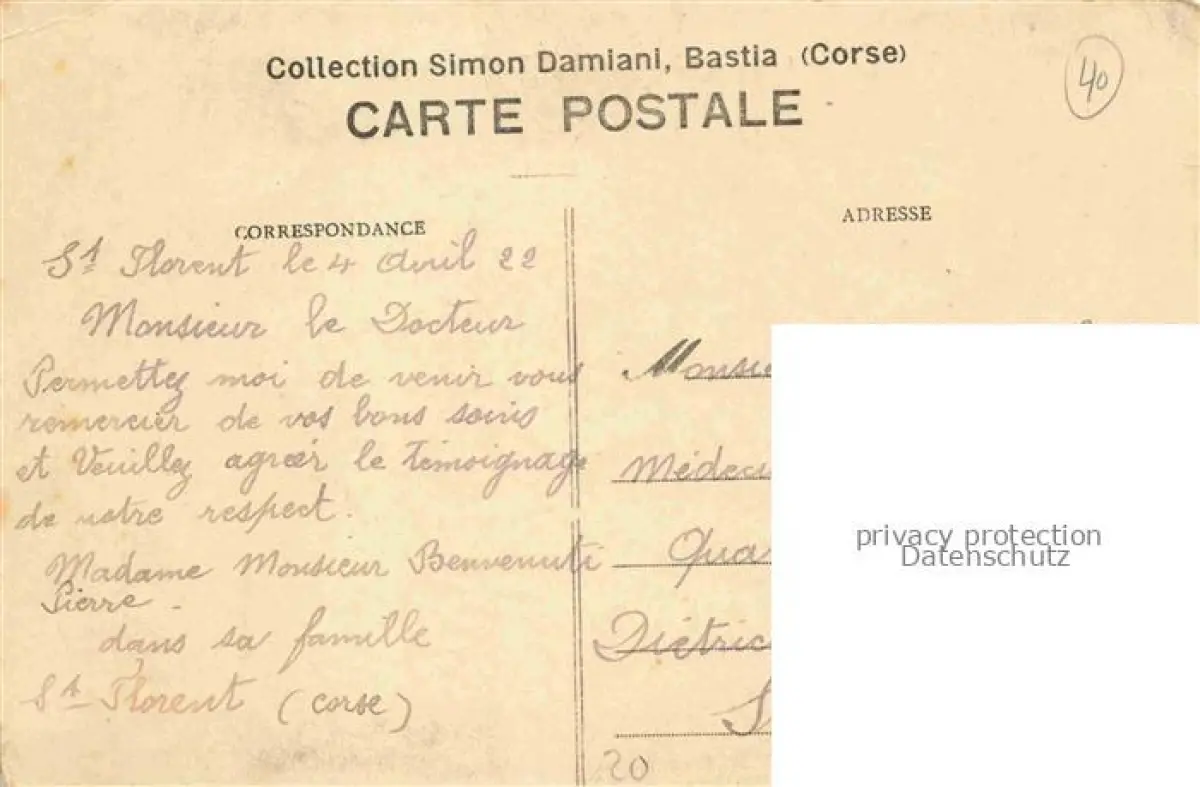 Collection Simon Damiani, Bastia (Corse)
CARTE POSTALE
40
CORRESPONDANCE
St Florent le 4 Avril 22
Monsieur le Docteur
Permettez moi de venir vous
remercier de vos bons soins
et Veuillez agréer le témoignage
de notre respect.
Madame Monsieur Benvenuti
Pierre -
dans sa famille
St Florent (Corse)
ADRESSE
20
privacy protection
Datenschutz